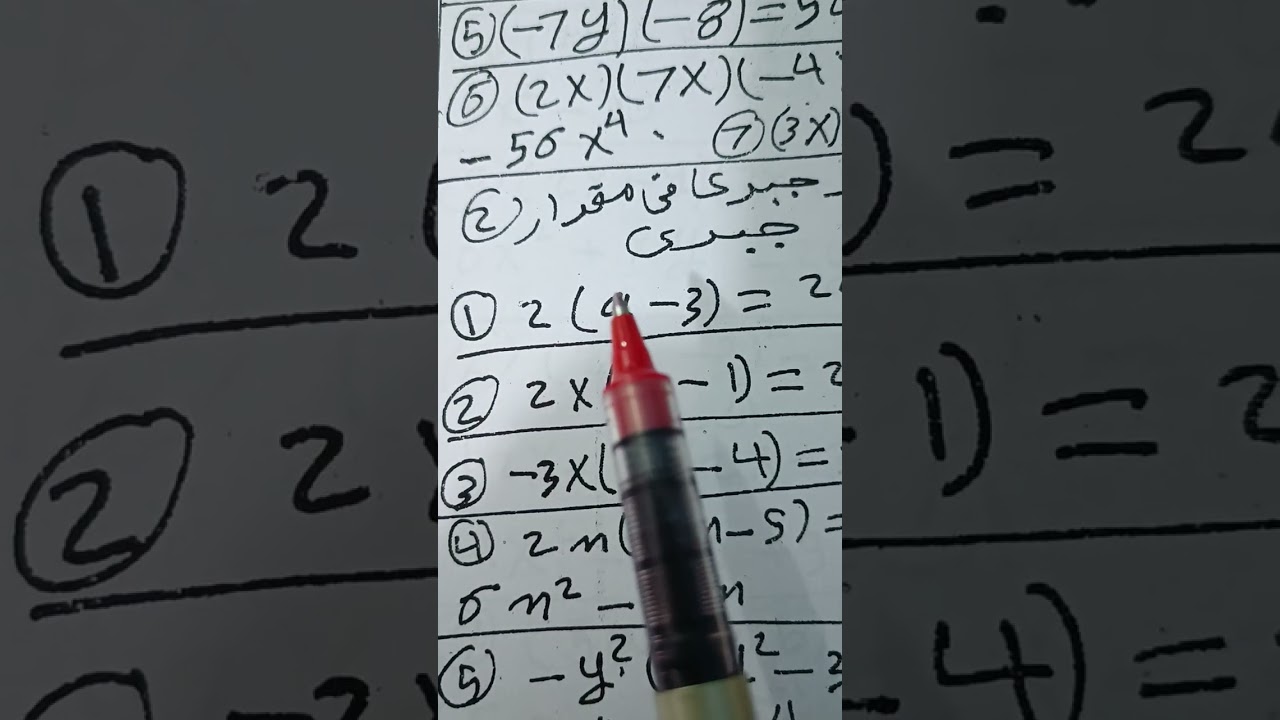 ⑤ (-7y)(-8) = 5
⑥ (2x)(7x)(-4
- 56x⁴ . ⑦ (3x)
② جبرى فى مقدار
جبرى
① 2( -3) = 2
② 2x( - 1) = 2
③ -3x( - 4) =
④ 2n( n-5) =
6n² - n
⑤ -y²( ² - 3